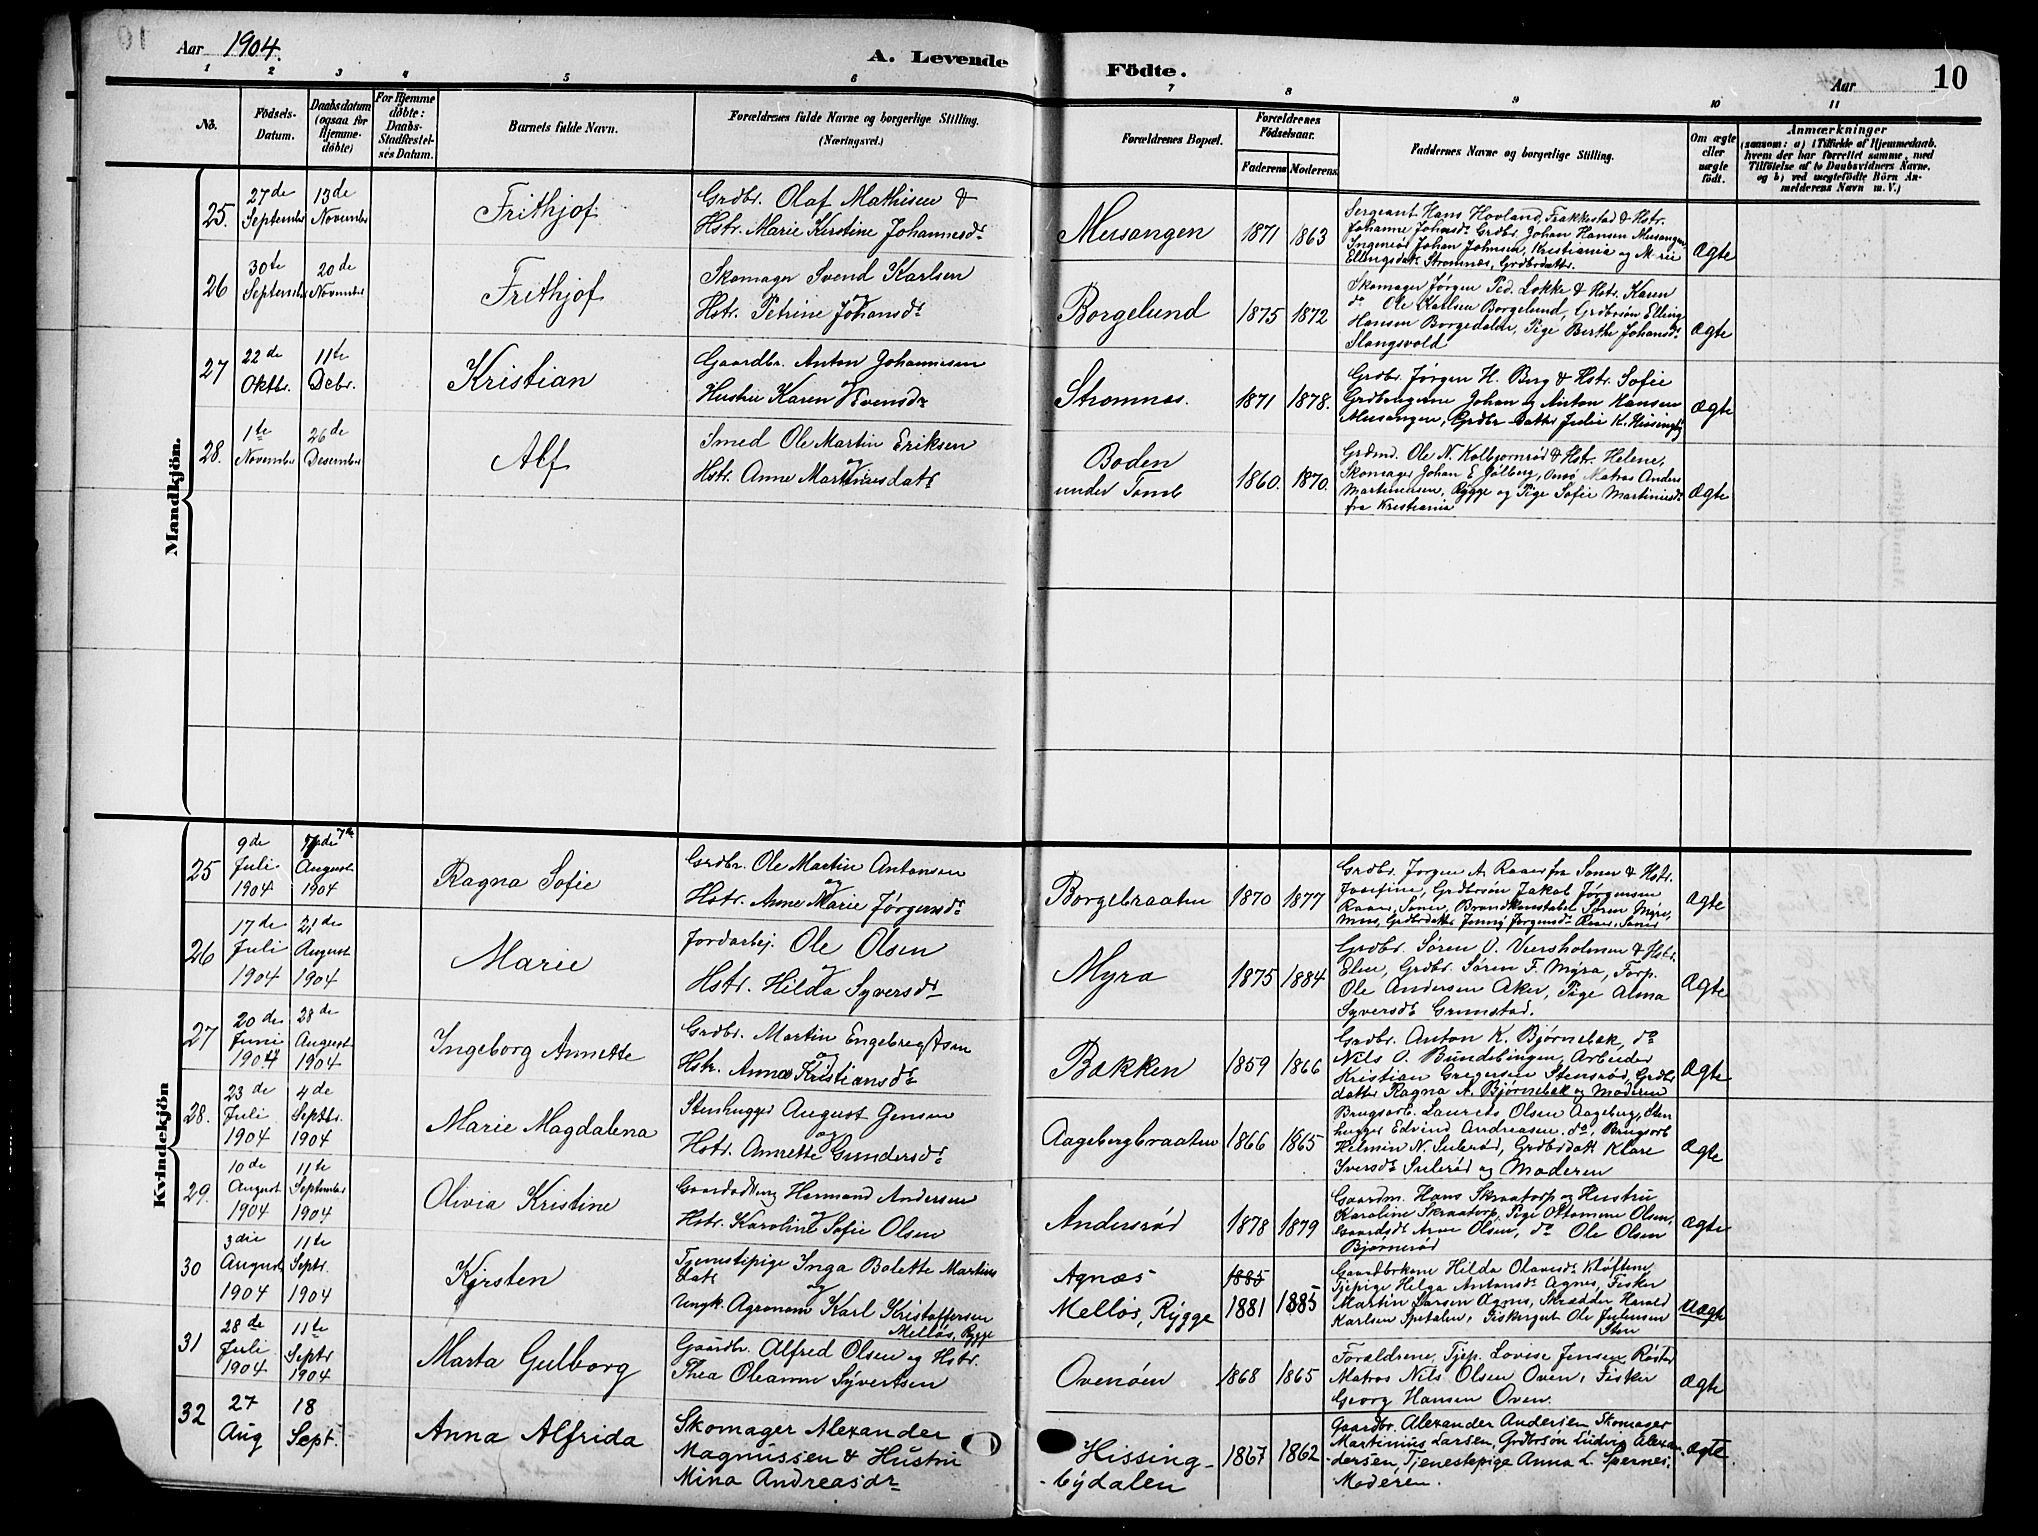 Aar 1904.
A. Levende Födte.
Aar
10
1 2 3 4 5 6 7 8 9 10 11
No.
Födsels-Datum.
Daabsdatum (ogsaa for Hjemme-døbte)
For Hjemme døbte: Daabs-Stadfæstel-ses Datum.
Barnets fulde Navn.
Forældrenes fulde Navne og borgerlige Stilling. (Næringsvei.)
Forældrenes Bopæl.
Forældrenes Födselsaar.
Faderens Moderens
Faddernes Navne og borgerlige Stilling.
Om ægte eller uægte födt.
Anmærkninger
(saasom: a) i Tilfælde af Hjemmedaab, hvem der har forrettet samme, med Tilföielse af to Daabsvidners Navne, og b) ved uægtefödte Börn An-melderens Navn m. V.)
Mandkjön.
25. 27de September 13de November
Frithjof
Grdbr. Olaf Mathisen &
Hstr. Marie Kirstine Johannesdr
Meisangen 1871 1863
Sergeant Hans Hovland, Frakkestad & Hstr.
Johanne Johnsdr Grdbr. Johan Hansen Meisangen,
Ingeniør Johan Johnsen, Kristiania og Marie
Ellingsdatr. Strømnæs, Grdbrdattr.
Ægte
26 30te September 20de November
Frithjof
Skomager Svend Karlsen
og
Hstr. Petrine Johansdr
Borgelund 1875 1872
Skomager Jørgen Ped. Løkke & Hstr. Karen
do Ole Karlsen Borgelund, Grdbrsøn Elling
Hansen Borgedalen, Pige Berthe Johansdr
Slangsvold
Ægte
27 22de Oktbr. 11te Debr.
Kristian
Gaardbr. Anton Johannesen
og
Hustru Karen Evensdr
Strømnæs. 1871 1878.
Grdbr. Jørgen H. Berg & Hstr. Sofie
Grdbrungerne Johan og Anton Hansen
Meisangen, Grdbr Datter Julie K. Hissingby
Ægte
28. 1te November 26de Desember
Alf
Smed Ole Martin Eriksen
og
Hstr. Anne Martinesdatr
Boden
under Tomb
1860. 1870.
Grdmd. Ole N. Kolbjørnrød & Hstr. Helene,
Skomager Johan E. Jølberg, Onsø Matros Anders
Martinusen, Rygge og Pige Sofie Martinusdr
fra Kristiania
Ægte
Kvindekjön
25 9de Juli 1904 7de August 1904
Ragna Sofie
Grdbr. Ole Martin Antonsen
og
Hstr. Anne Marie Jørgensdr
Borgebraaten 1870 1877
Grdbr. Jørgen A. Raaer fra Soner & Hstr.
Josefine, Grdbrsøn Jakob Jørgensen
Raaer, Soner, Brandkonstabel Søren Myre,
Moss, Grdbrdatter Jenny Jørgensdr Raaer, Soner
Ægte
26 17de Juli 1904 21de August 1904
Marie
Jordarbej. Ole Olsen
og
Hstr. Hilda Syversdr
Myra 1875 1884
Grdbr. Søren O. Veersholmen & Hstr.
Elen, Grdbr. Søren F. Myra, Torp.
Ole Andersen Aker, Pige Alma
Syversdr Grimstad.
Ægte
27 20de Juni 1904 28de August 1904
Ingeborg Annette
Grdbr. Martin Engebregtsen
og
Hstr. Anna Kristiansdr
Bakken 1859 1866
Grdbr. Anton K. Bjørnebæk, do
Nils O. Bundebingen, Arbeider
Kristian Gregersen Stensrød, Grdbr
datter Ragna A. Bjørnebæk og Moderen
Ægte
28. 23de Juli 1904 4de Septbr. 1904
Marie Magdalena
Stenhugger August Jensen
og
Hstr. Annette Gundersdr
Aagebergbraaten 1866 1865
Brugsarb. Laurets Olsen Aageberg, Sten
hugger Edvind Andreasen, do, Brugsarb
Helmin N. Sulerød, Grdbrdatr. Klare
Iversdr Sulerød og Moderen
Ægte
29. 10de August 1904 11te September 1904
Olivia Kristine
Hermand Andersen
og
Hstr. Karoline Sofie Olsen
Andersrød 1878 1879
Gaardm. Hans Skraatorp og Hustru
Karoline Skraatorp, Pige Ottomine Olsen,
Arve Olsen, do Ole Olsen
Bjørnerød
Ægte
30 3die August 1904 11te Septr. 1904
Kjersten
Tjenestepige Inga Bolette Martins
datr
og
Ungk. Agronom Karl Kristoffersen
Melløs, Rygge
Agnæs 1885
Melløs, Rygge 1881 1885
Gaardbrkone Hilda Olavesdr. Kløften
Tjepige Helga Antonsdr Agnes, Fisker
Martin Larsen Agnes, Skrædder Harald
Karlsen Spetalen, Fiskergut Ole Juliusen
Sten
Uægte
31 28de Juli 1904 11te Septr 1904
Marta Gulborg
Gaardbr. Alfred Olsen og Hstr.
Thea Oleanne Syvertsen
Ovenøen 1868 1865
Forældrene, Tjep. Lovise Jensen Røstad
Matros Nils Olsen Oven, Fisker
Georg Hansen Oven.
Ægte
32 27 Aug 18 Sept.
Anna Alfrida
Skomager Alexander
Magnussen & Hustru
Mina Andreasdr
Hissing-
-bydalen
1867 1862
Gaardbr. Alexander Andersen, Skomager
Martinius Larsen, Grdbrsøn Ludvig Alexan-
dersen, Tjenestepige Anna L. Spernes,
Moderen.
Ægte